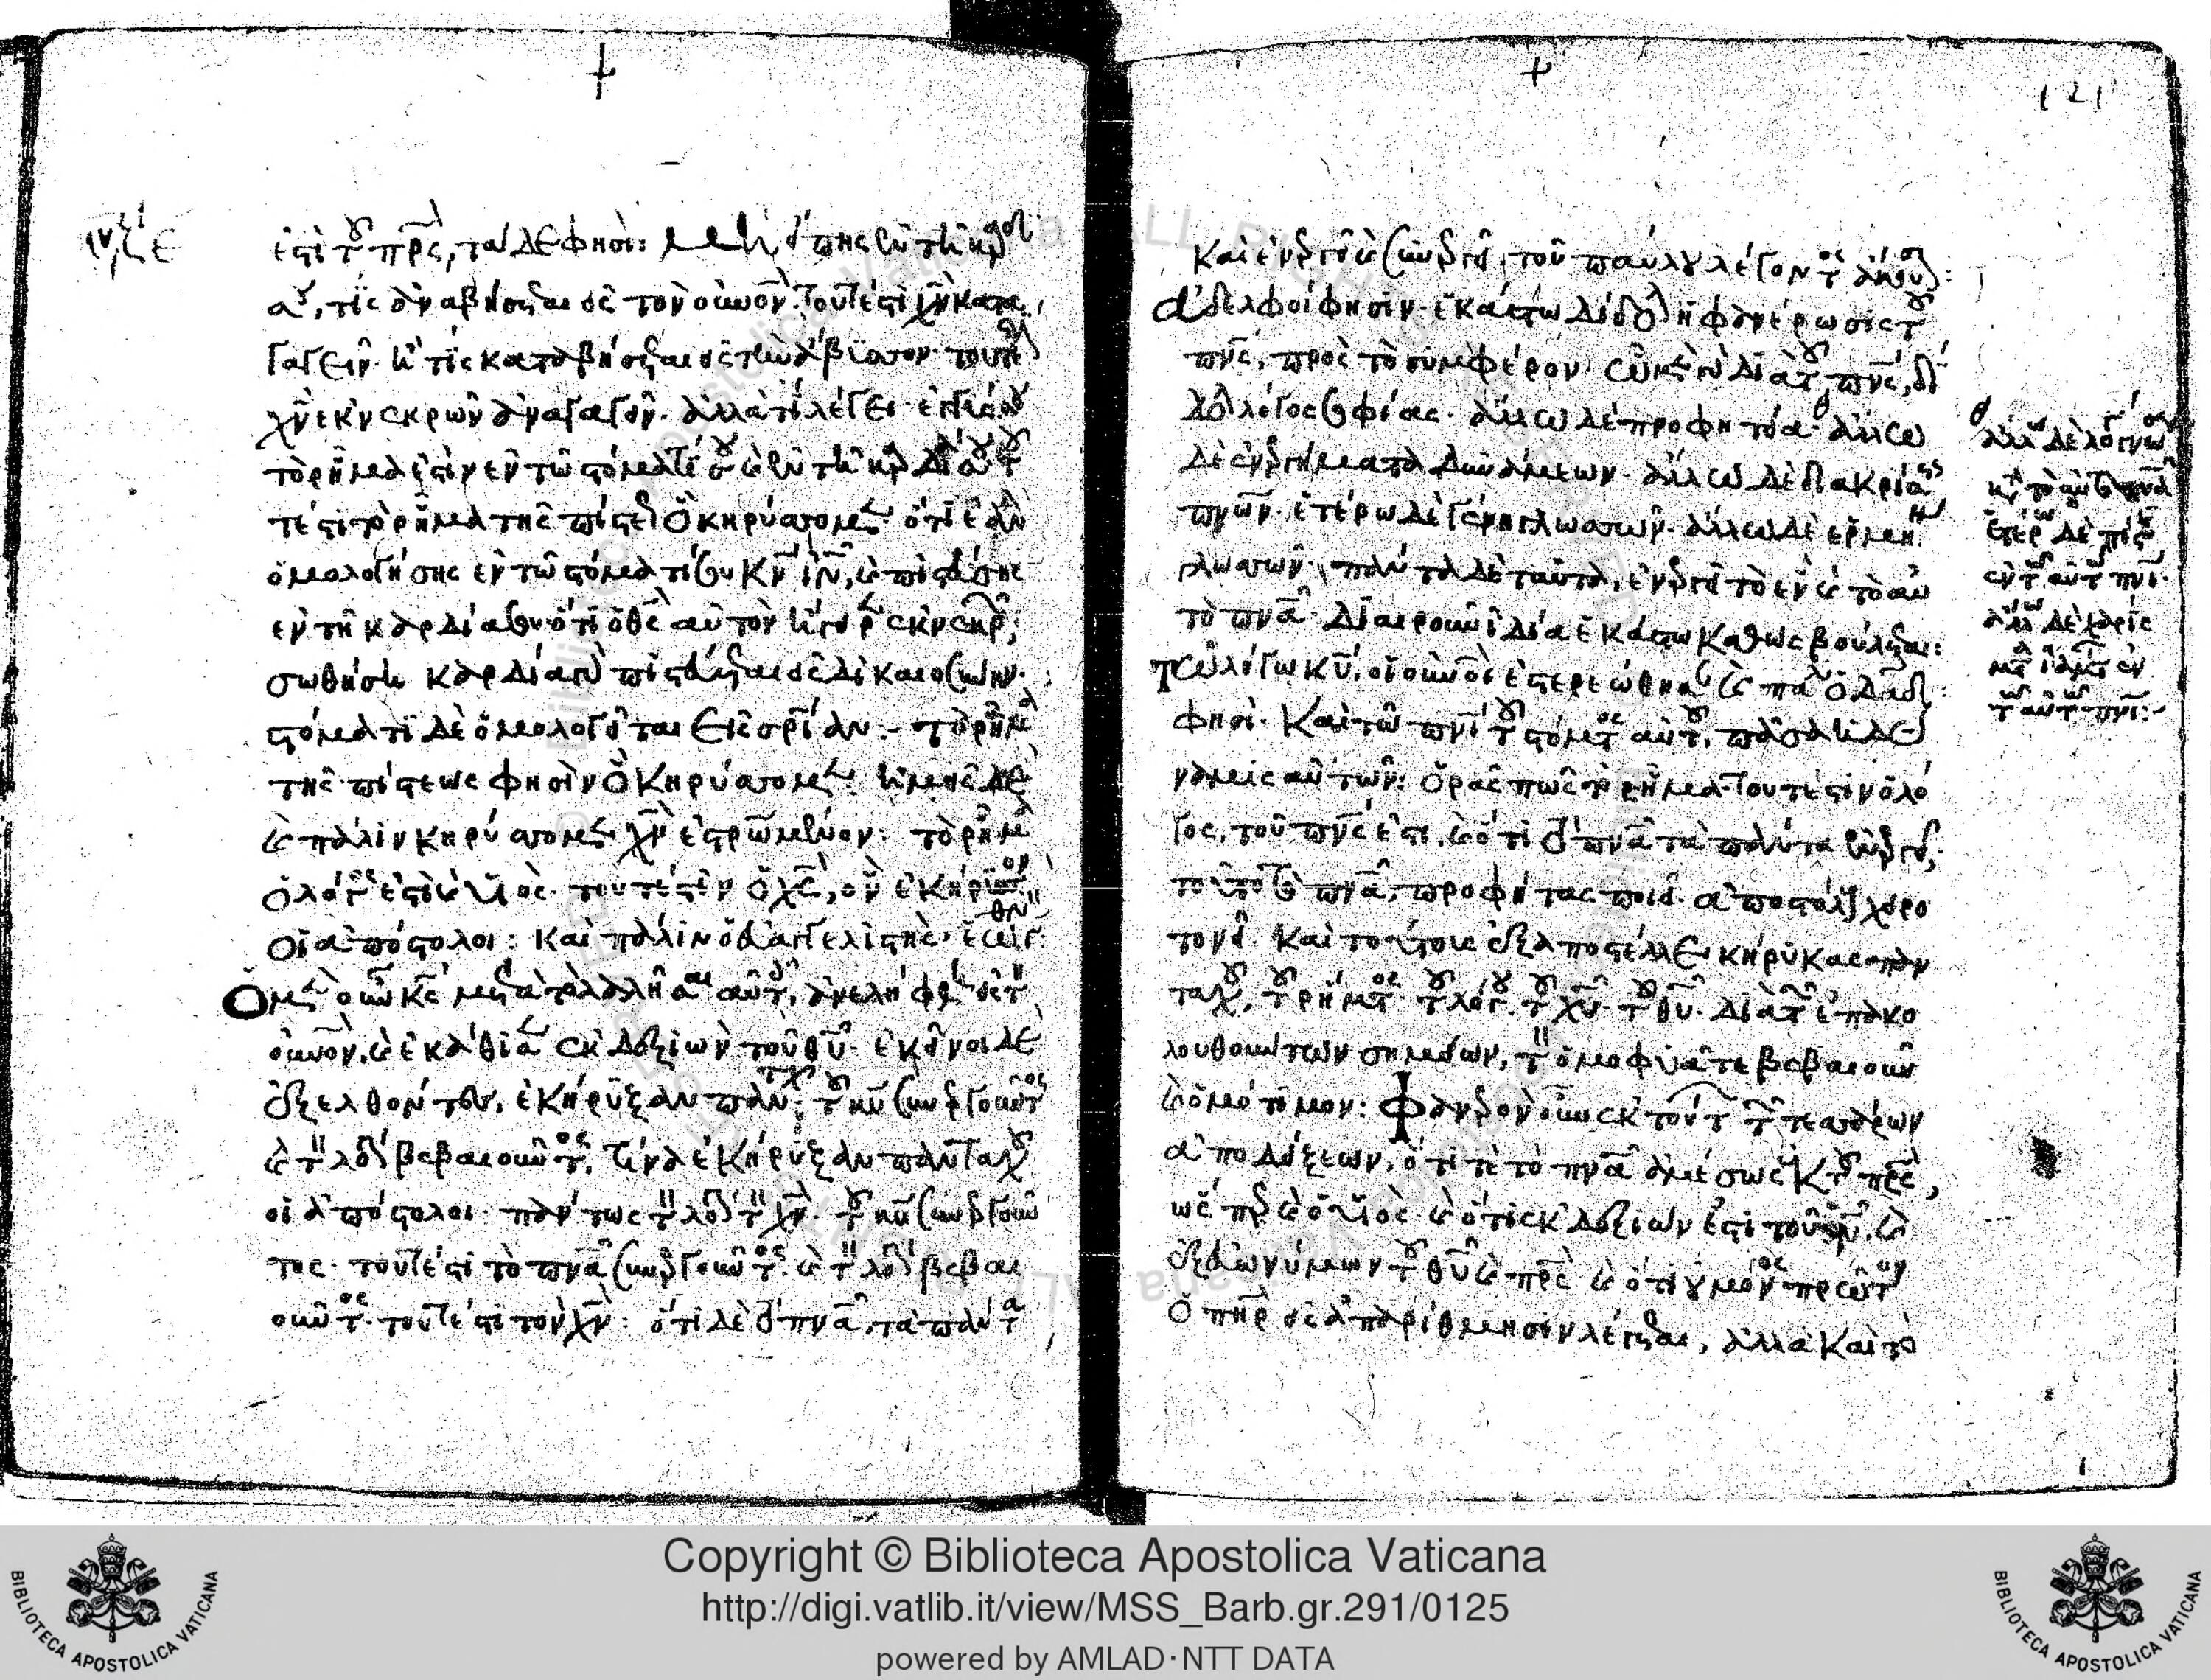 ἐστὶ τοῦ πρς, τάδε φησί: μὴ εἴπης ἐν τῇ καρδί
τίς ἀναβήσεται εἰς τὸν οὐνόν. τουτέστι χν κατα
γαγεῖν· ἢ τίς καταβήσεται εἰς τὴν ἄβυσσον· τουτέστι
χν ἐκ νεκρῶν ἀναγαγεῖν. ἀλλὰ τί λέγει· ἐγγύς σου
τὸ ῥῆμά ἐστιν ἐν τῷ στόματί σου καὶ ἐν τῇ καρδίᾳ σου τοῦ
τέστι τὸ ῥῆμα τῆς πίστεως ὃ κηρύσσομεν. ὅτι ἐὰν
ὁμολογήσης ἐν τῷ στόματί σου κν ιν, καὶ πιστεύσης
ἐν τῇ καρδίᾳ σου ὅτι ὁ θς αὐτὸν ἤγειρεν ἐκ νεκρῶν,
σωθήση καρδίᾳ γὰρ πιστεύεται εἰς δικαιοσύνην.
στόματι δὲ ὁμολογεῖται εἰς σρίαν. τὸ ῥῆμα
τῆς πίστεως φησὶν ὃ κηρύσσομεν. ἡμεῖς δὲ
καὶ πάλιν κηρύσσομεν χν ἐστρωμένον: τὸ ῥῆμα
ὁ λόγος ἐστὶ καὶ υἱός. τουτέστιν ὁ χς, ὃν ἐκήρυττον
οἱ ἀπόστολοι: καὶ πάλιν ὁ εὐαγγελιστής·
Ὁ μὲν οὖν κς μετὰ τὸ λαλῆσαι αὐτοῖς, ἀνελήφθη εἰς τὸν
οὐνόν. καὶ ἐκάθισεν ἐκ δεξιῶν τοῦ θυ. ἐκεῖνοι δὲ
ἐξελθόντες, ἐκήρυξαν πανταχοῦ, τοῦ κυ συνεργοῦντος
καὶ τὸν λόγον βεβαιοῦντος. τίνα ἐκήρυξαν πανταχοῦ
οἱ ἀπόστολοι· πάντως τὸν λόγον τὸν χν. τοῦ κυ συνεργοῦν
τος. τουτέστι τὸ πνα συνεργοῦντος. καὶ τὸν λόγον βεβαι
οῦντος. τουτέστι τὸν χν: ὅτι δὲ τὸ πνα, τὰ πάντα
121
καὶ ἐνεργεῖ καὶ συνεργεῖ, τοῦ παύλου λέγοντος ἄκουσον:
ἀδελφοί φησιν. ἑκάστω δίδοται ἡ φανέρωσις τοῦ
πνς, πρὸς τὸ συμφέρον· ᾧ μὲν γὰρ διὰ τοῦ πνς, δί
δοται λόγος σοφίας. ἄλλω δὲ προφητεία· ἄλλω
δὲ ἐνεργήματα δυνάμεων. ἄλλω δὲ διακρίσεις
πνων. ἑτέρω δὲ γένη γλωσσῶν. ἄλλω δὲ ἑρμηνεία
γλωσσῶν. πάντα δὲ ταῦτα, ἐνεργεῖ τὸ ἓν καὶ τὸ αὐ
τὸ πνα. διαιροῦν ἰδία ἑκάστω καθὼς βούλεται:
τῷ λόγω κυ, οἱ οὐνοὶ ἐστερεώθησαν καὶ πάλιν ὁ δαδ
φησί. καὶ τῷ πνι τοῦ στόματος αὐτοῦ, πᾶσα ἡ δύ
ναμις αὐτῶν: ὁρᾷς πῶς τὸ ῥῆμα τουτέστιν ὁ λό
γος, τοῦ πνς ἐστι. καὶ ὅτι τὸ πνα τὰ πάντα ἐνεργεῖ,
τοῦτο τὸ πνα, προφήτας ποιεῖ. ἀποστόλους χειρο
τονεῖ. καὶ τούτους ἐξαποστέλλει κήρυκας παν
ταχοῦ, τοῦ ῥήματος τοῦ λόγου. τοῦ χυ. τοῦ θυ. διὰ τῶν ἐπακο
λουθούντων σημείων, τὸν ὁμοφυᾶ τε βεβαιοῦν
καὶ ὁμότιμον: Φανερὸν οὖν ἐκ τούτων τῶν τεσσάρων
ἀποδείξεων, ὅτι τε τὸ πνα ἀμέσως ἐκ τοῦ πρς,
ὥσπερ καὶ ὁ υἱός. καὶ ὅτι ἐκ δεξιῶν ἐστι τοῦ θυ. καὶ
ἐξ εὐωνύμων τοῦ θυ καὶ πρς καὶ ὅτι οὐ μόνον πρῶτον
ὁ πηρ εἰς ἀπαρίθμησιν λέγεται, ἀλλὰ καὶ τὸ
ἄλλω δὲ λόγος γνώσεως
κατὰ τὸ αὐτὸ πνα
ἑτέρω δὲ πίστις
ἐν τῷ αὐτῷ πνι.
ἄλλω δὲ χαρίσ
ματα ἰαμάτων ἐν
τῷ αὐτῷ πνι:
Copyright © Biblioteca Apostolica Vaticana
http://digi.vatlib.it/view/MSS_Barb.gr.291/0125
powered by AMLAD·NTT DATA
BIBLIOTECA APOSTOLICA VATICANA
BIBLIOTECA APOSTOLICA VATICANA